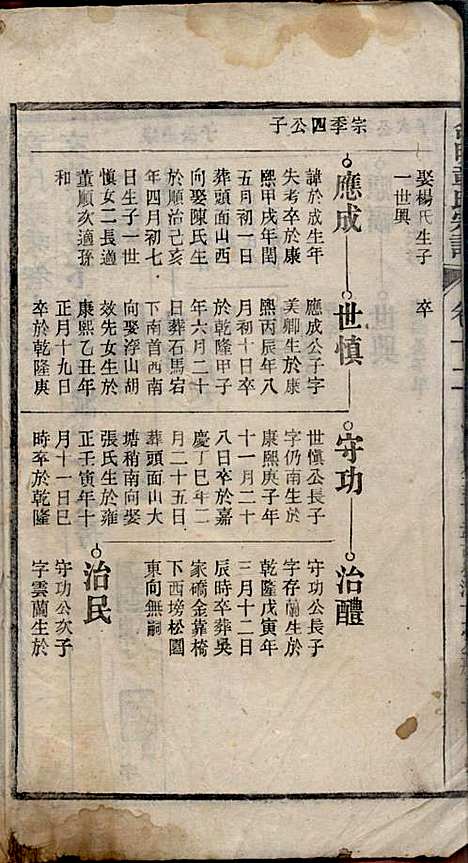 董氏宗譜
娶楊氏生子
一世興
卒
宗季四公子
應成
諱於成生年
失考卒於康
熙甲戌年閏
五月初一日
葬頭面山西
向娶陳氏生
於順治己亥
年四月初七
日生子一世
慎女二長適
董順次適孫
和
世慎
應成公子字
美卿生於康
熙丙辰年八
月初十日卒
於乾隆甲子
年六月二十
日葬石馬宕
下南首西南
向娶浮山胡
效先女生於
康熙乙丑年
正月十九日
卒於乾隆庚
守功
世慎公長子
字仍南生於
康熙庚子年
十一月二十
八日卒於嘉
慶丁巳年二
月二十五日
葬頭面山大
塘稍南向娶
張氏生於雍
正壬寅年十
月十一日巳
時卒於乾隆
治醴
守功公長子
字存蘭生於
乾隆戊寅年
三月十二日
辰時卒葬吳
家磡金靠椅
下西塝松園
東向無嗣
治民
守功公次子
字雲蘭生於